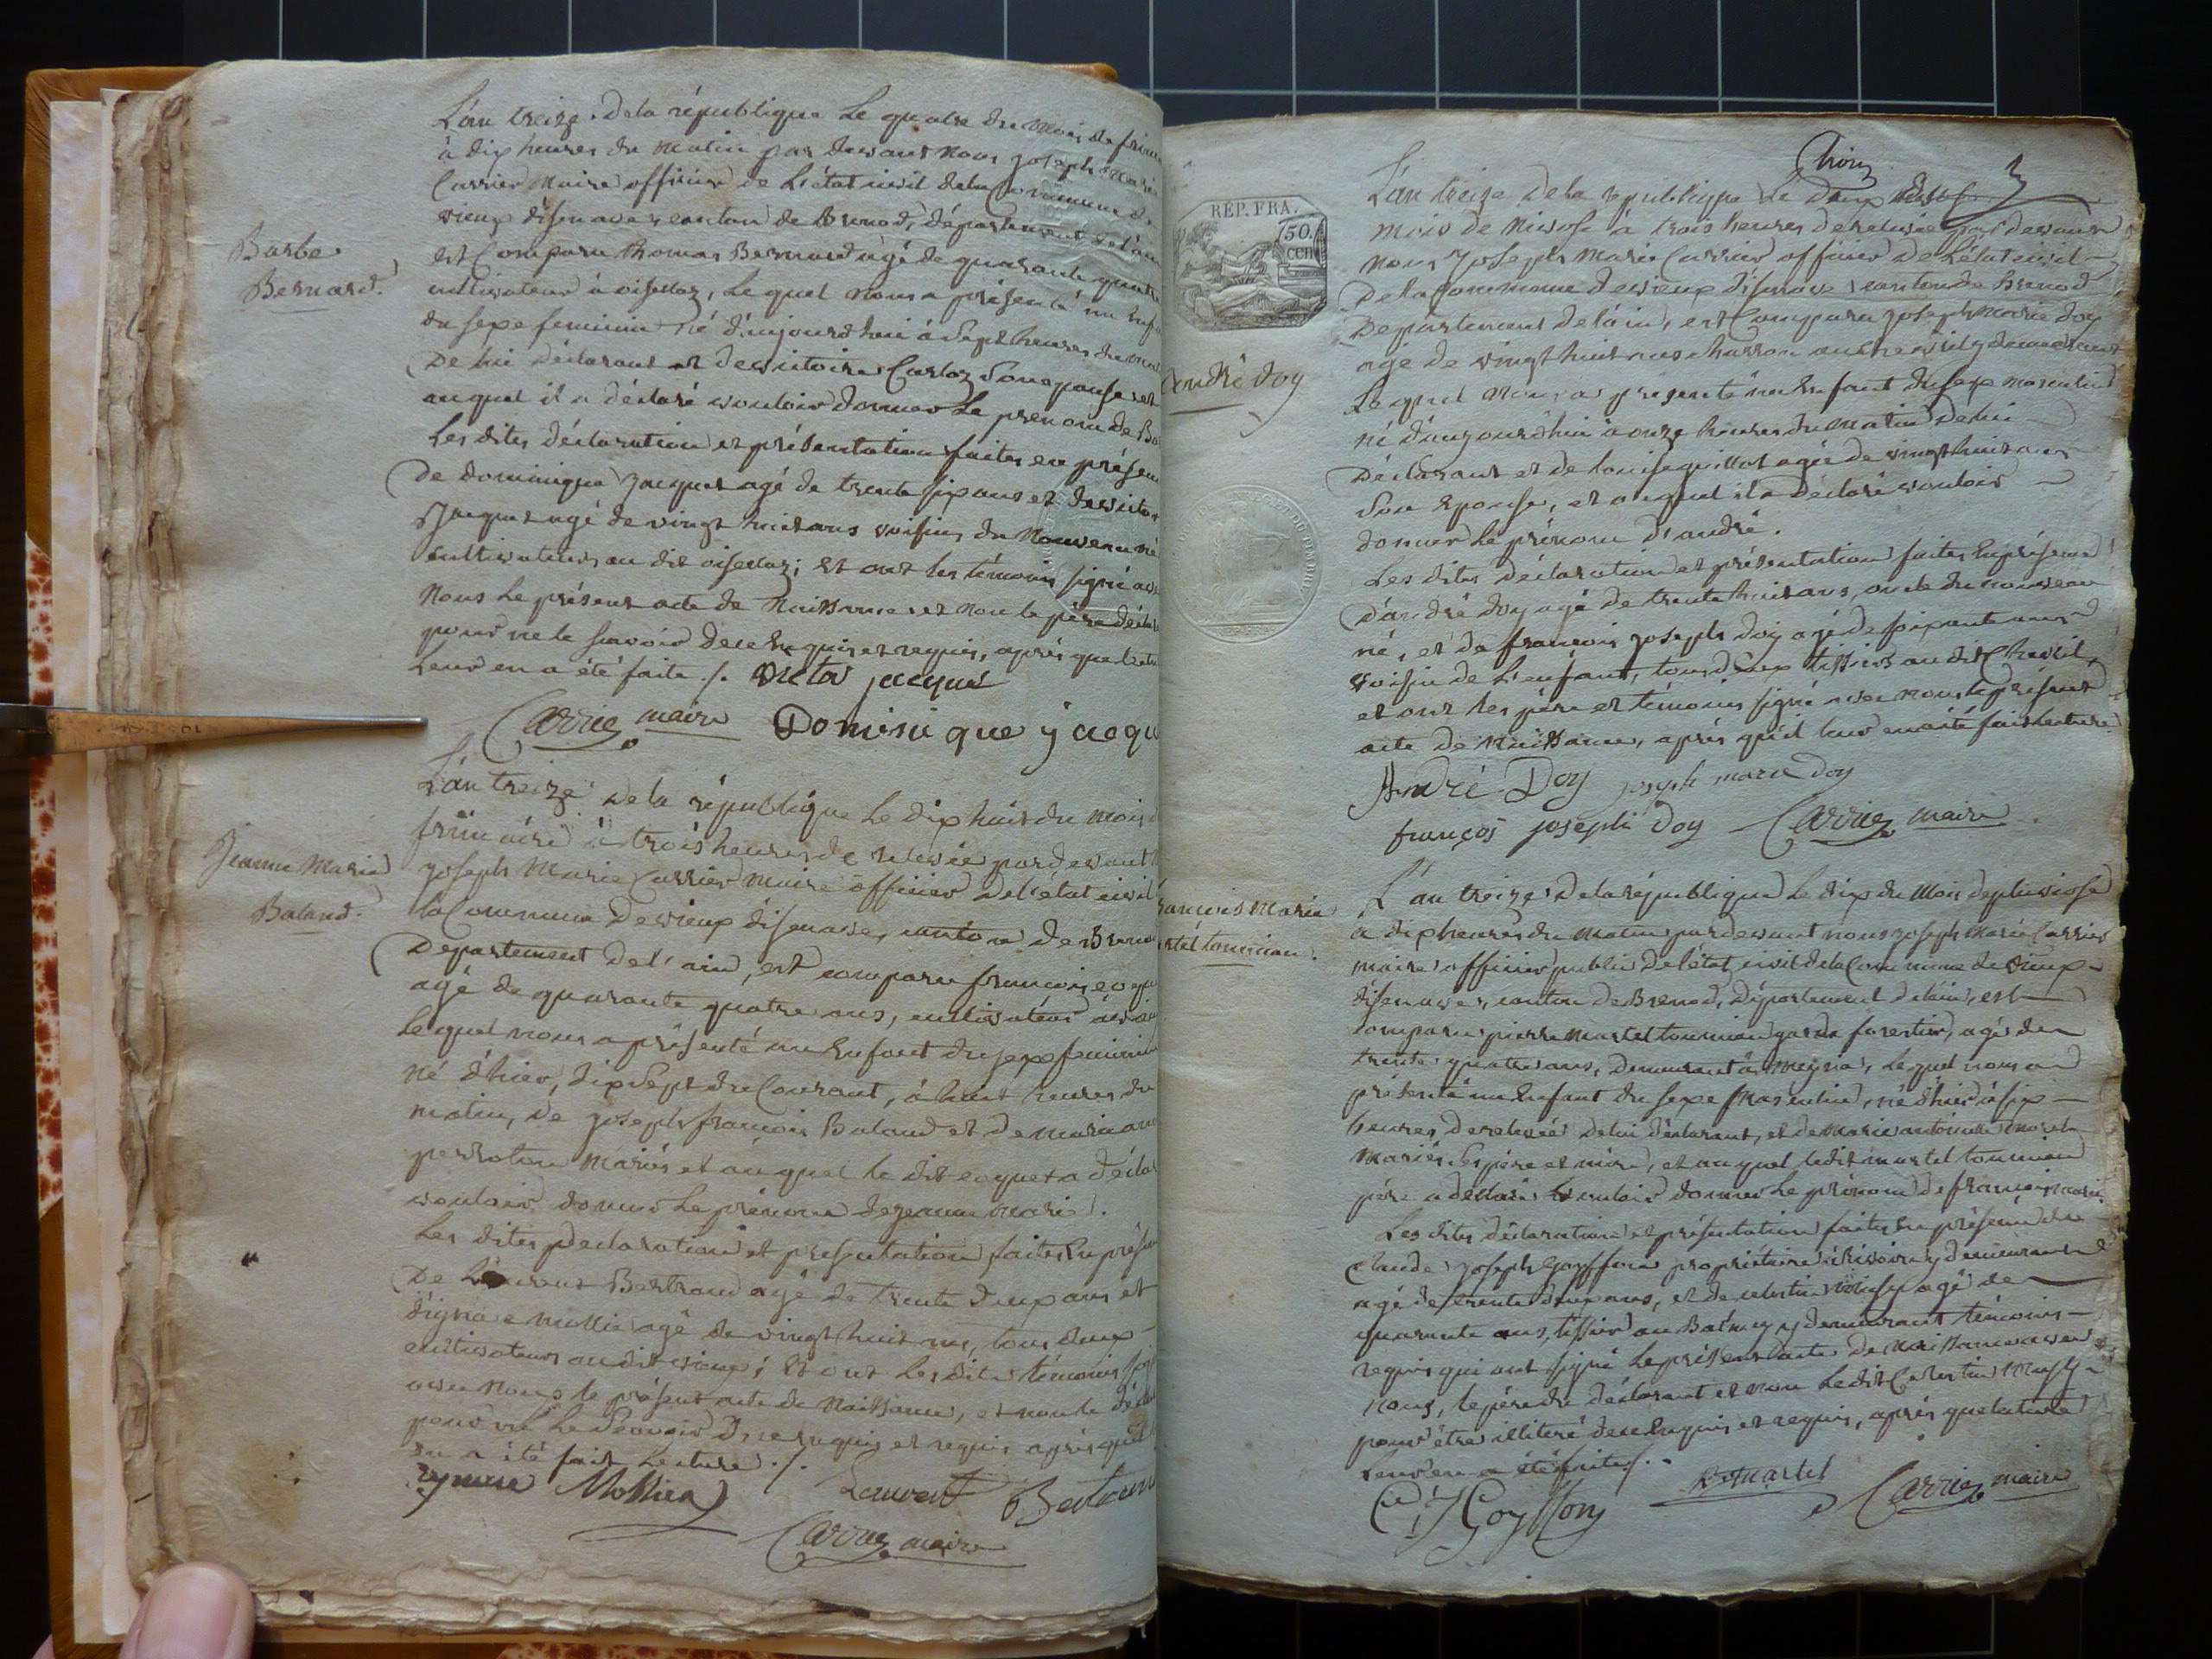 L'an treize de la république Le quatre du mois de frim
à dix heures du matin par devant nous joseph marie
Carrier Maire officier de L'état civil dela Commune de
vieux d'isenave, canton de Brenod, département de l'ain
est Comparu thomas Bernard agé de quarante quatre
cultivateur à oisellaz, Lequel nous a présenté un Enf
du sexe feminin né d'aujourd'hui à Sept heures du mat
De lui déclarant et de victoire Carloz Son epouse, et
auquel il a déclaré vouloir donner Le prenom de Ba
Les dites déclaration et présentation faites en présen
De dominique Jacquet agé de trente six ans et de victor
Jacquet agé de vingt huit ans voisins du Nouveau né
Cultivateurs au dit oisellaz; Et ont les témoins signé avec
Nous Le présent acte de Naissance et non le père décla
pour ne le savoir dece Enquis et requis, après que lectu
Leur en a été faite ./. victor jacquet
Carrier maire Dominique jacqu
Barbe
Bernard.
L'an treize de la république Le dix huit du mois d
frimaire à trois heures de relevée par devant
joseph Marie Carrier Maire officier de l'état civil
la Commune de vieux d'isenave, canton de Breno
Departement de l'ain, est comparu francois
agé de quarante quatre ans, cultivateur à vieux
Lequel nous a présenté un Enfant du sexe feminin
né d'hier, dix Sept du Courant, à huit heures du
matin, de joseph francois Baland et de mariane
perroton mariés et auquel le dit a décla
vouloir donner Le prénom de jeanne marie.
Les dites Declaration et présentation faites En présen
De Laurent Bertrand agé de trente deux ans et
d'ignace mollie agé de vingt huit ans, tous deux
cultivateurs au dit vieux; Et ont Les dits témoins sig
avec nous le présent acte de Naissance, et non le décla
pour ne Le Savoir de ce enquis et requis après qu'il
en a été fait Lecture ./.
Laurent Bertran
Carrier maire
Jeanne Marie
Baland.
RÉP. FRA.
50
CEN
L'an treize dela republique Le Deux
mois de Nivose à trois heures de relevée par devant
nous Joseph Marie Carrier officier de L'état civil
De la Commune de vieux d'isenave, canton de Brenod
Departement de l'ain, est Comparu joseph marie doy
agé de vingt huit ans charron au chevril y demeurant
Lequel nous a présenté un Enfant du sexe masculin
né d'aujourd'hui à onze heures du matin De lui
Déclarant et de louise guillot agée de vingt huit ans
Son Epouse, et auquel il a Déclaré vouloir
donner Le prénom d'andré.
Les dites déclaration et présentation faites En présence
D'andré doy agé de trente huit ans, oncle du nouveau
né, et de francois joseph doy agé de soixante ans
voisin de L'enfant, tous deux tissiers au dit Chevril,
et ont Les père et témoins signé avec nous le présent
acte de Naissance, après qu'il leur en a été fait lecture.
André Doy joseph marie doy
françois joseph doy Carrier maire
andré doy
L'an treize De la république Le dix du Mois de pluviose
à dix heures du matin par devant nous joseph Marie Carrier
maire officier public De l'état civil de la Commune de vieux
d'isenave, canton de Brenod, département de l'ain, est
Comparu pierre martel tournian garde forestier, agé de
trente quatre ans, demeurant à Meyriat, Lequel nous a
présenté un Enfant du sexe masculin, né d'hier à six
heures de relevée de lui déclarant, et de marie antoinette
Mariés Ses père et mère, et auquel ledit martel tournian
père a déclaré vouloir donner Le prénom de francois marie.
Les dites déclaration et présentation faites En présence de
Claude joseph Goyffon propriétaire y demeurant
agé de trente deux ans, et de celestin agé de
quarante ans, tissier au Balmey y demeurant témoins
requis qui ont signé Le présent acte de Naissance avec
nous, le père du déclarant et non Ledit Celestin
pour être illitéré de ce Enquis et requis, après que lecture
Leur en a été faite ./.
Cde Jh Goyffon Martel Carrier maire
ancois Marie
rtel tournian.